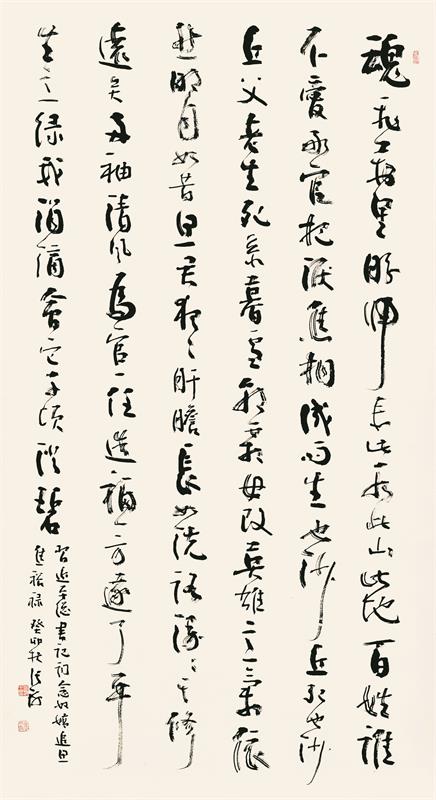 魂飛萬里盼歸來此水此山此地百姓誰
不愛好官把淚焦桐成雨生也沙丘死也沙
丘父老生死系暮雪朝霜毋改英雄意氣依
然明月如昔思君夜夜肝膽長如洗路漫漫其修
遠矣兩袖清風為官一任造福一方遂了平
生意綠我涓滴會它千頃澄碧
習近平總書記詞念奴嬌追思
焦裕祿 癸卯秋